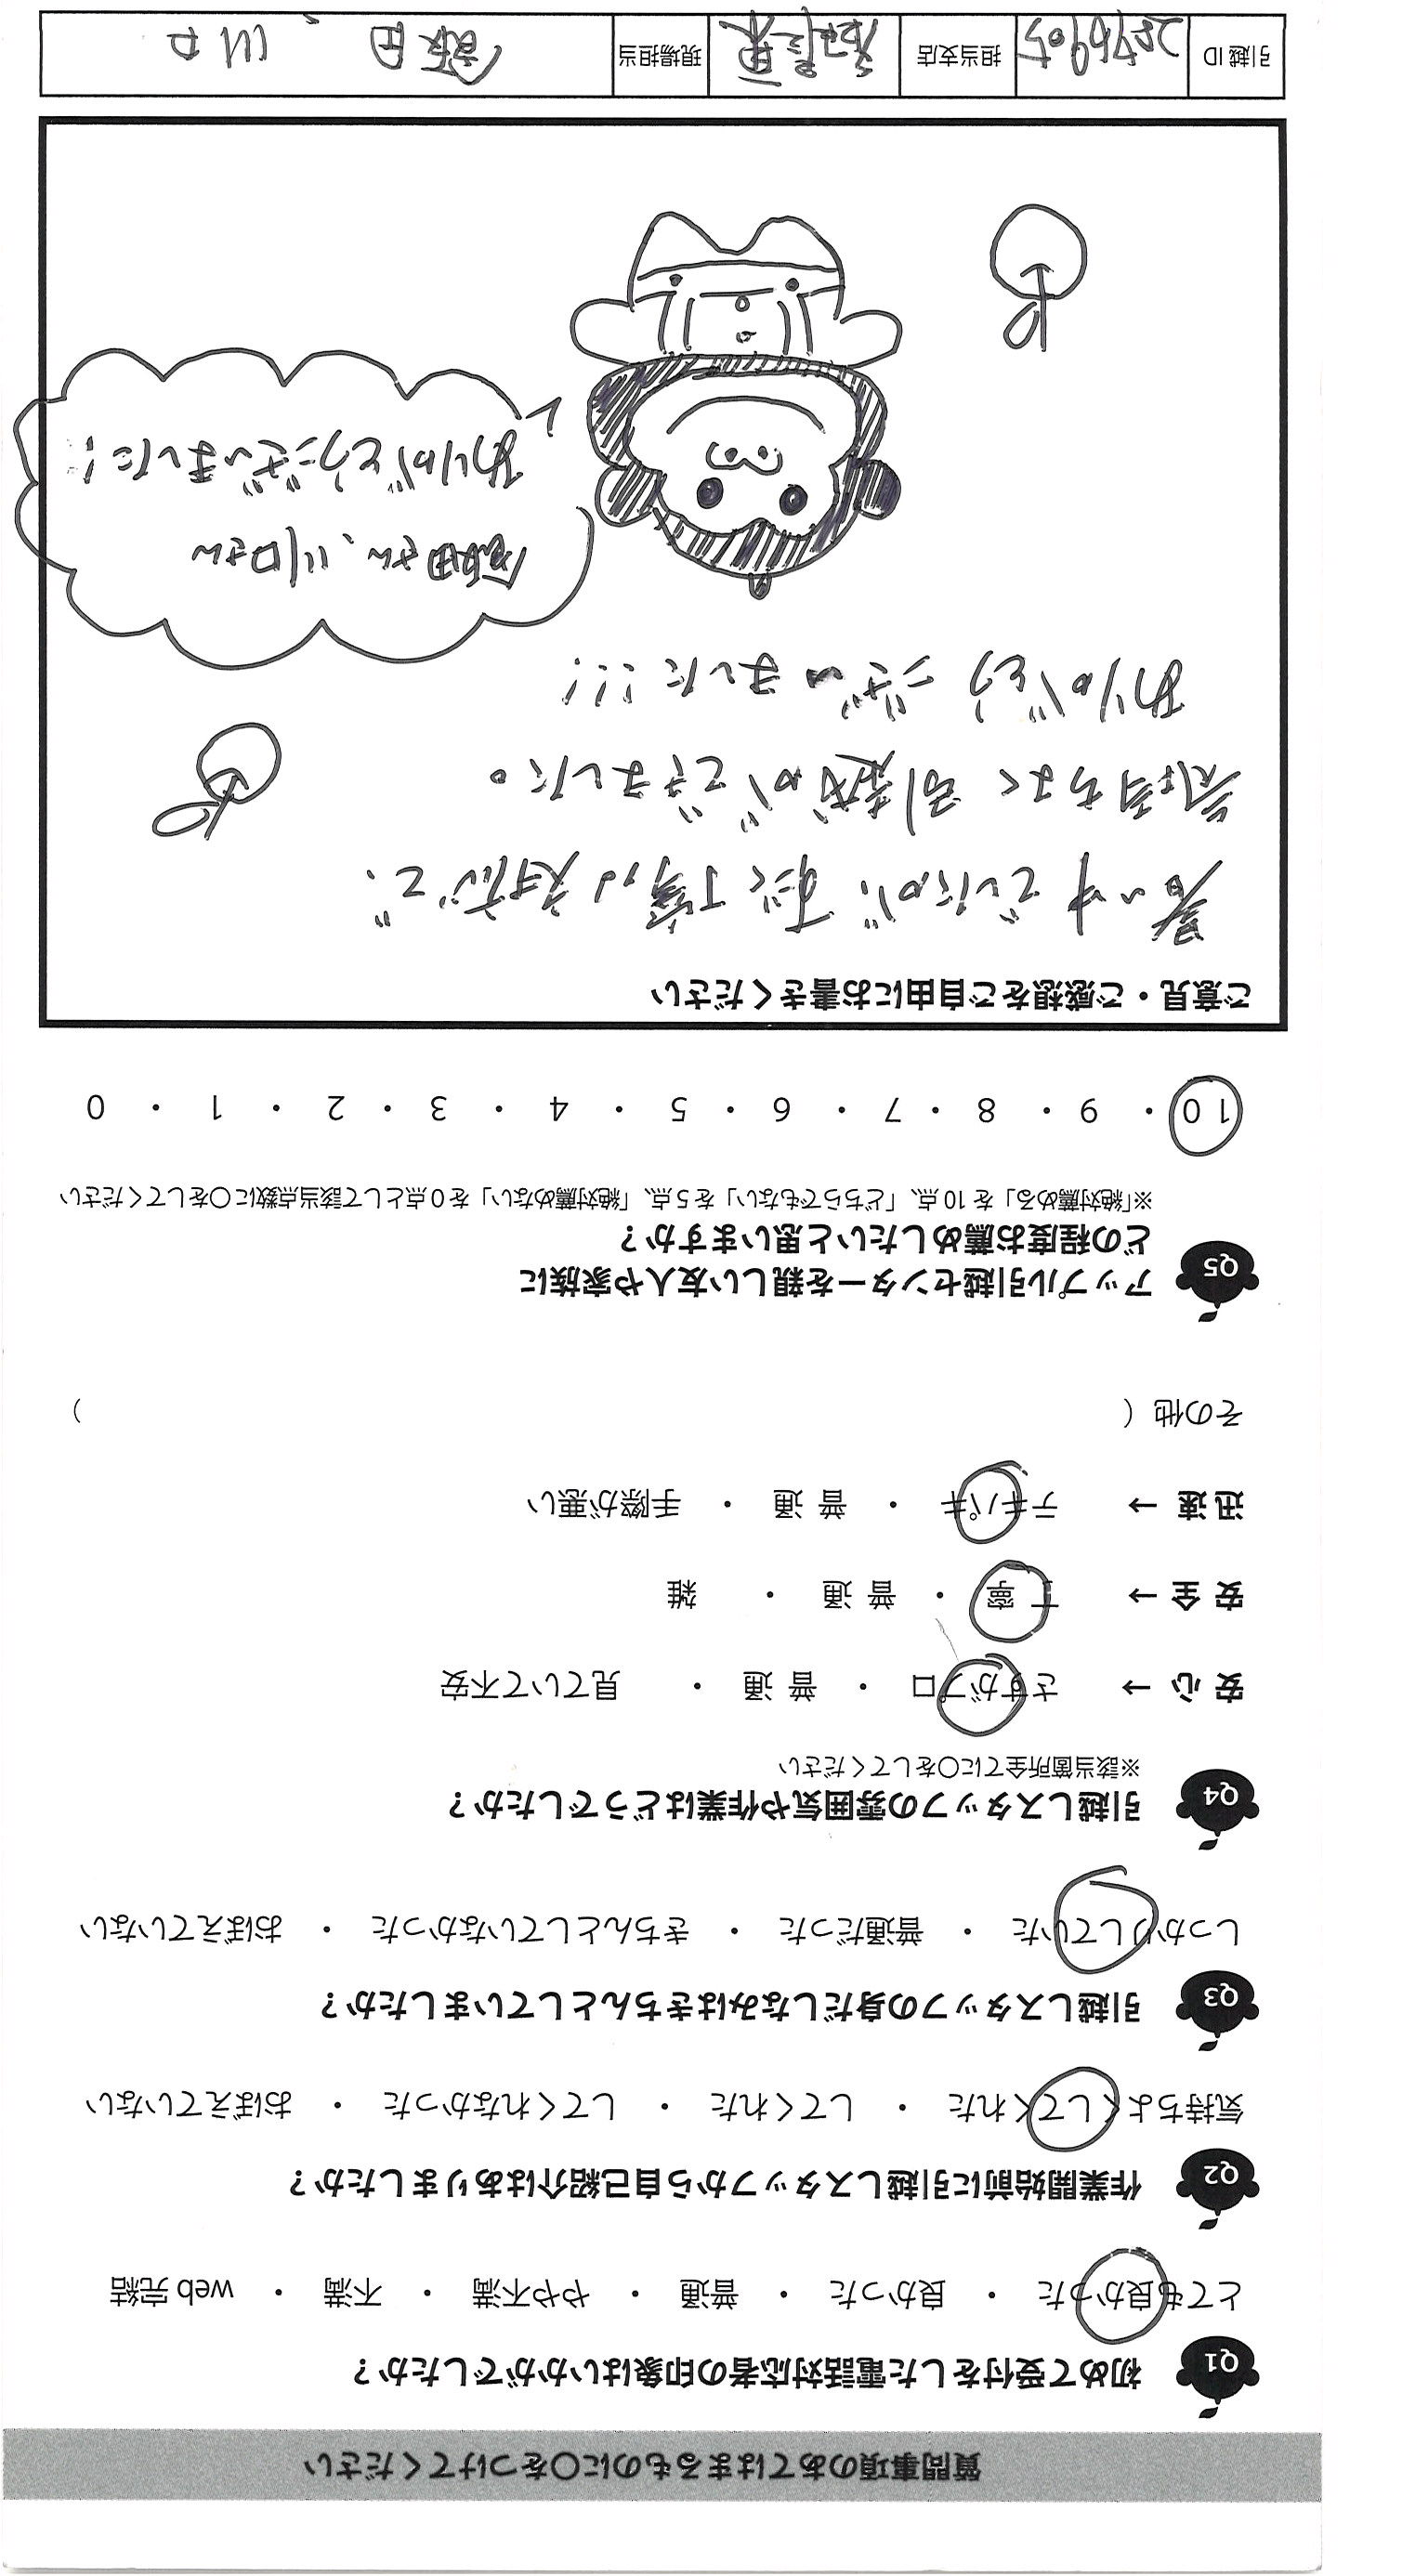 質問事項のあてはまるものに〇をつけてください
Q1 初めて受付をした電話対応者の印象はいかがでしたか？
とても良かった ・ 良かった ・ 普通 ・ やや不満 ・ 不満 ・ web 完結
Q2 作業開始前に引越しスタッフから自己紹介はありましたか？
気持ちよくしてくれた ・ してくれた ・ してくれなかった ・ おぼえていない
Q3 引越しスタッフの身だしなみはきちんとしていましたか？
しっかりしていた ・ 普通だった ・ きちんとしていなかった ・ おぼえていない
Q4 引越しスタッフの雰囲気や作業はどうでしたか？
※該当箇所全てに〇をしてください
安 心 → さすがプロ ・ 普 通 ・ 見ていて不安
安 全 → 丁 寧 ・ 普 通 ・ 雑
迅 速 → テキパキ ・ 普 通 ・ 手際が悪い
その他（ ）
Q5 アップル引越センターを親しい友人や家族に
どの程度お薦めしたいと思いますか？
※「絶対薦める」を 10 点、「どちらでもない」を 5 点、「絶対薦めない」を 0 点として該当点数に〇をしてください
10 ・ 9 ・ 8 ・ 7 ・ 6 ・ 5 ・ 4 ・ 3 ・ 2 ・ 1 ・ 0
ご意見・ご感想をご自由にお書きください
暑い中でしたが、すごく丁寧な対応で、
気持ちよく引越ができました。
ありがとうございました!!!
飯田さん、川口さん
ありがとうございました!
引越 ID 担当支店 現場担当 飯田、川口